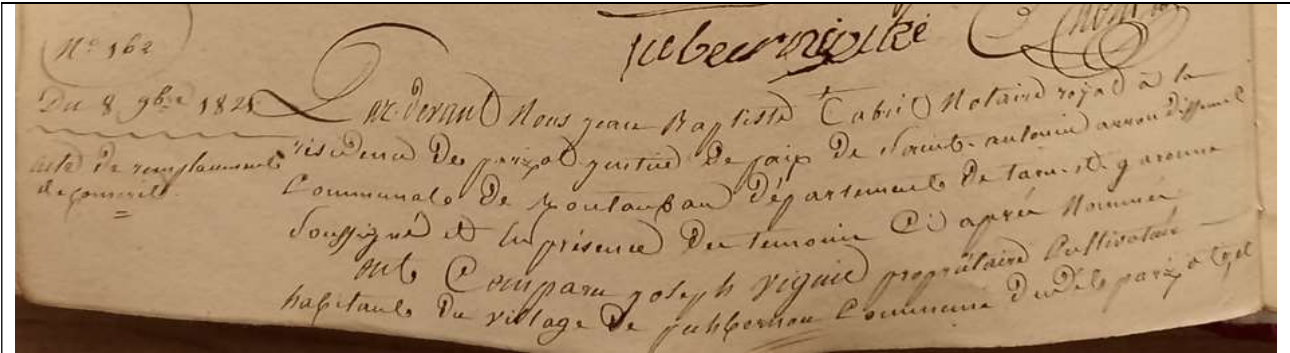 N° 162
Du 8 9bre 1821
acte de remplacement
de conscrit
Par devant Nous jean Baptiste Cabrit Notaire royal à la
résidence de parizot justice de paix de Saint-antonin arrondissement
Communal de Montauban département de tarn-et-garonne
Soussigné et En présence des temoins Ci après Nommés
ont Comparu joseph vignie propriétaire Cultivateur
habitant du village de Commune dudit parizot